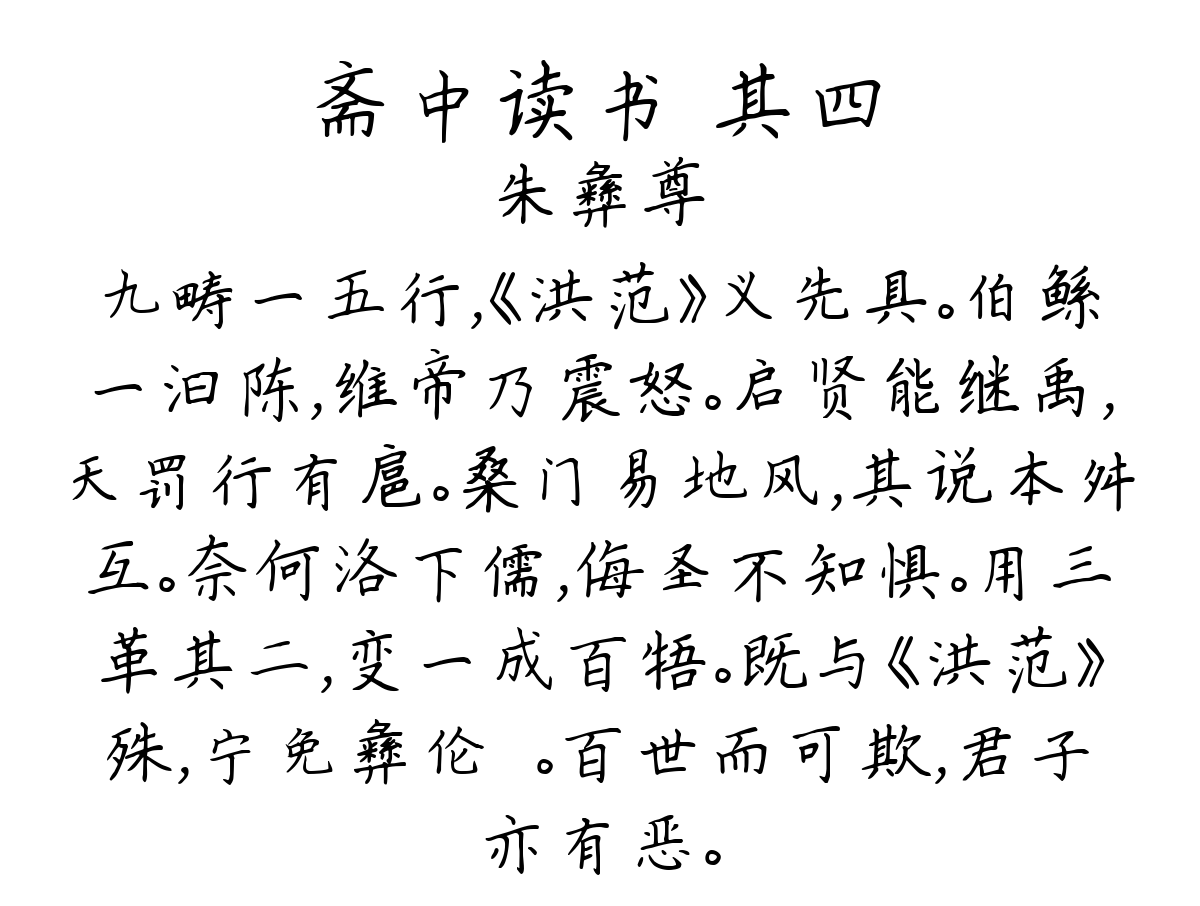 斋中读书 其四
朱彝尊
九畴一五行,《洪范》义先具。伯鲧
一汩陈,维帝乃震怒。启贤能继禹,
天罚行有扈。桑门易地风,其说本舛
互。奈何洛下儒,侮圣不知惧。用三
革其二,变一成百牾。既与《洪范》
殊,宁免彝伦 。百世而可欺,君子
亦有恶。